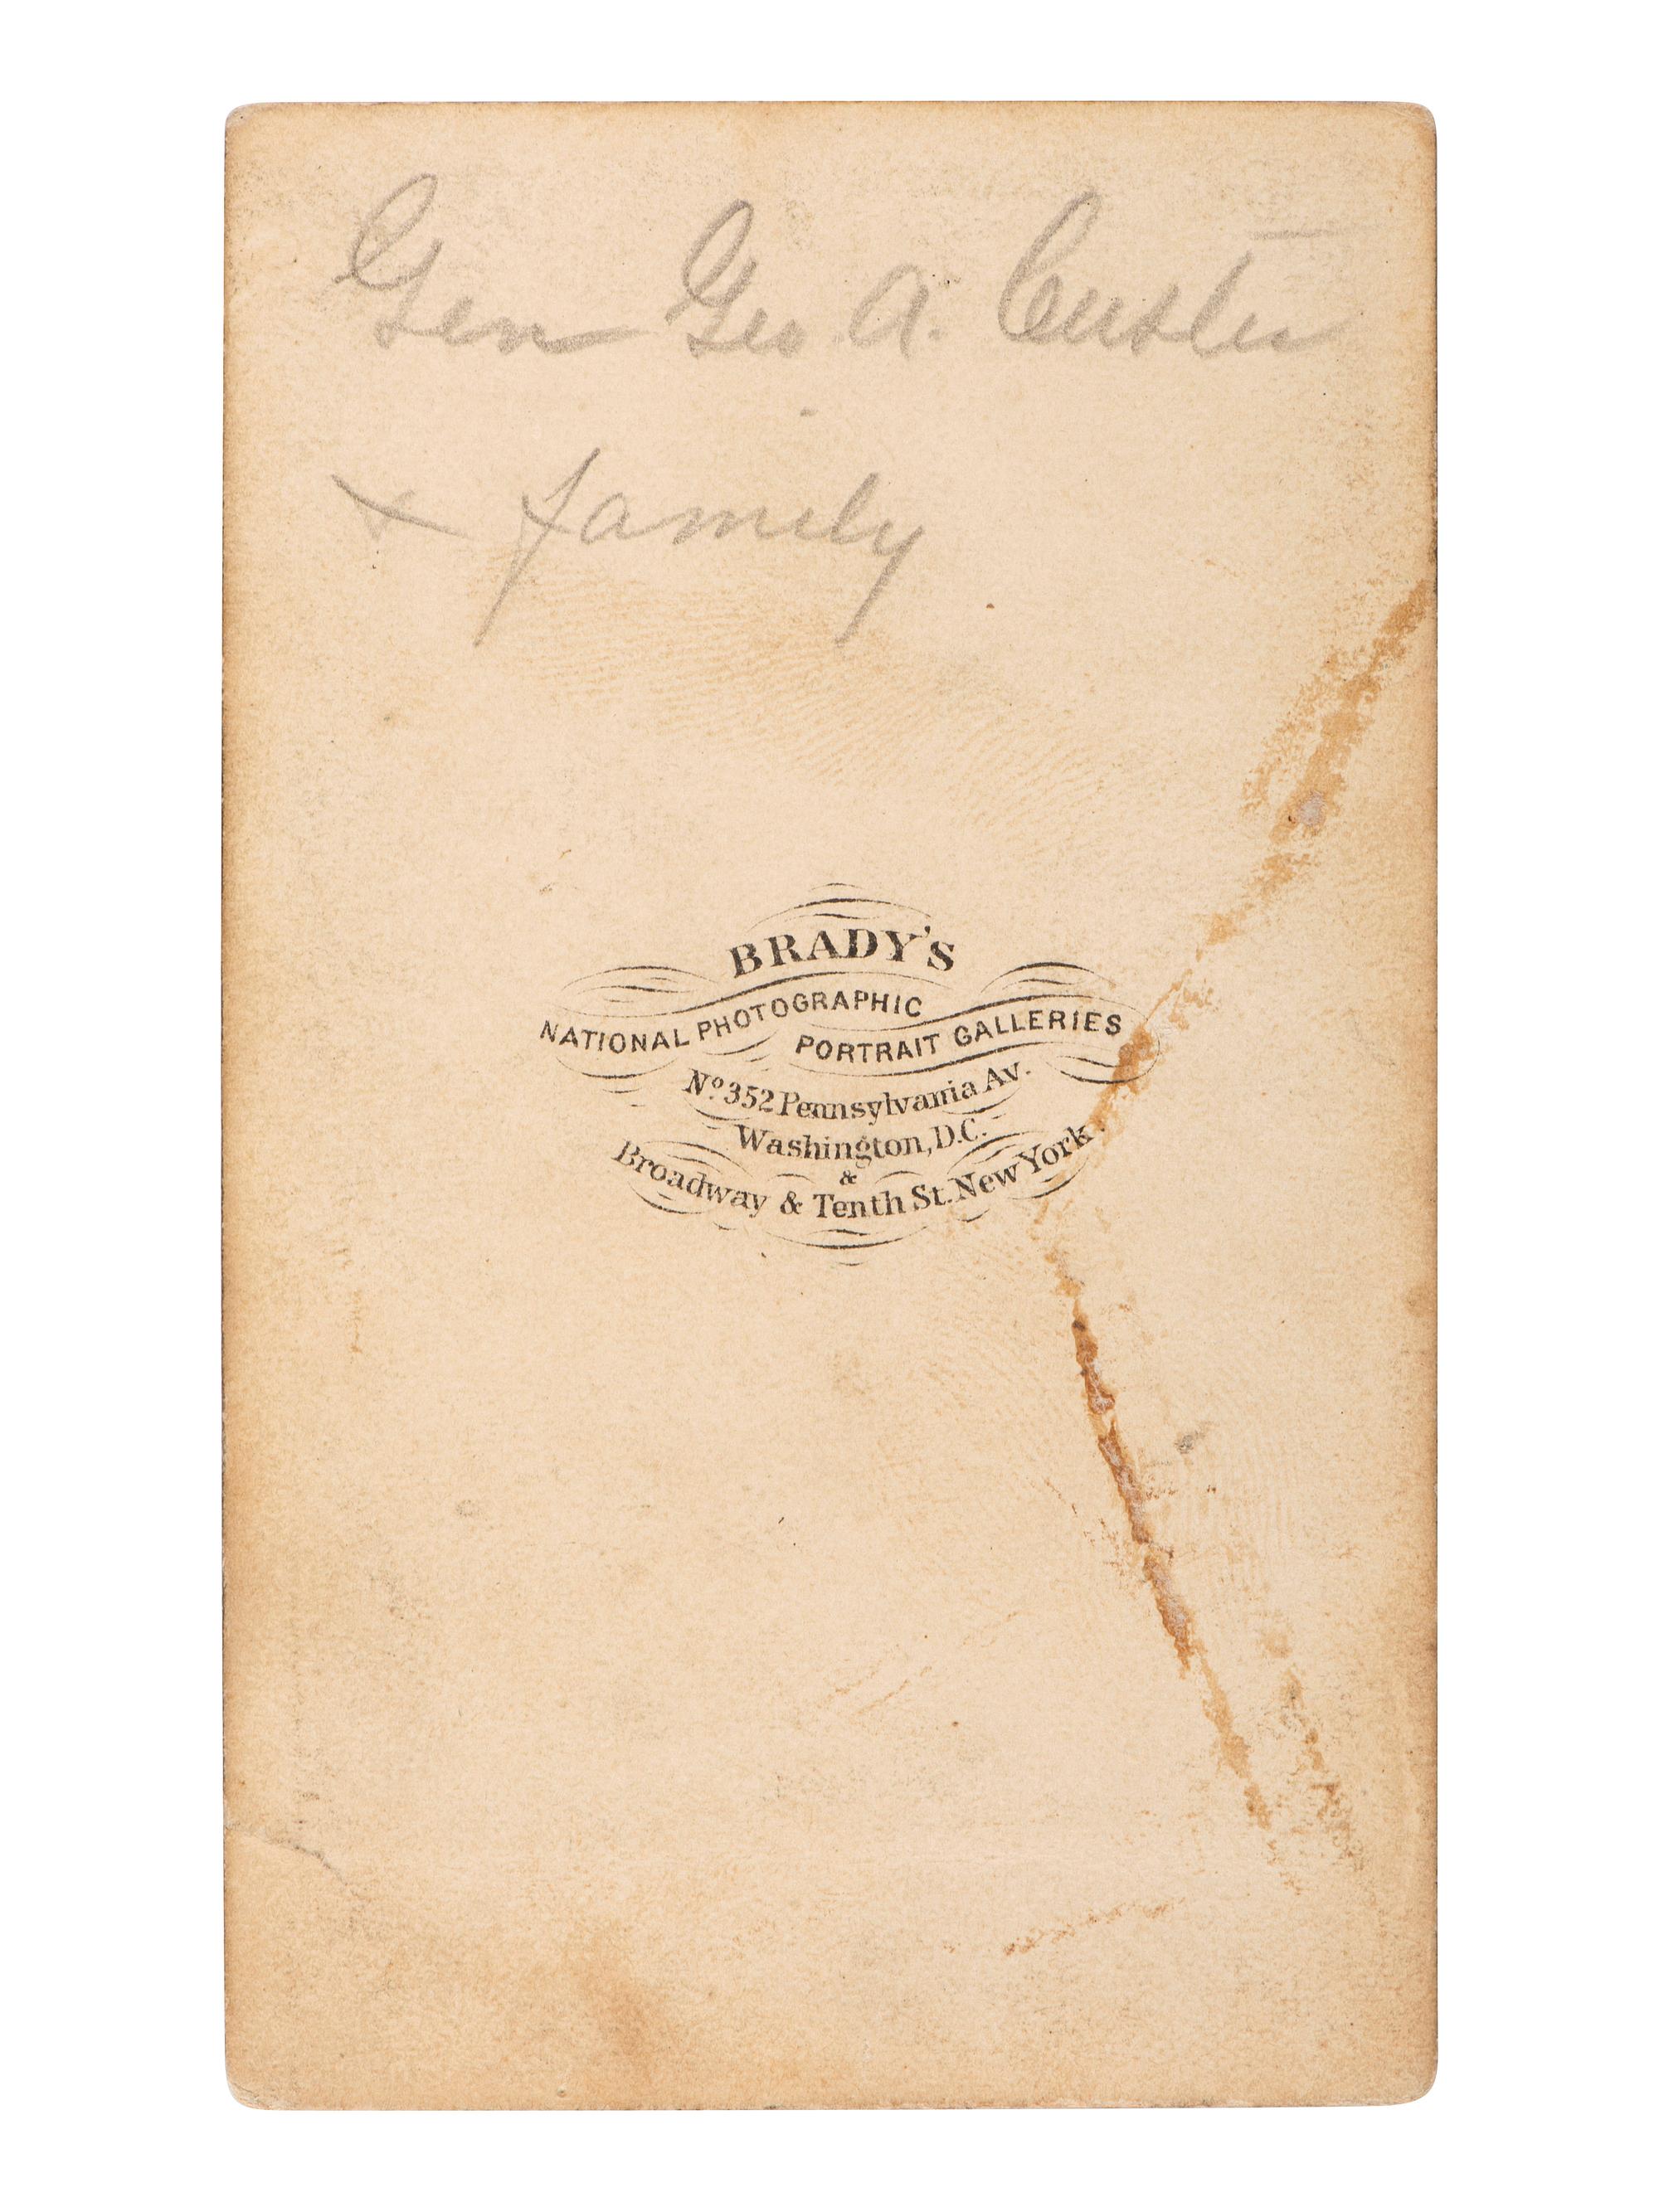 Gen Geo. A. Custer
& family
BRADY'S
NATIONAL PHOTOGRAPHIC
PORTRAIT GALLERIES
No. 352 Pennsylvania Av.
Washington, D.C.
&
Broadway & Tenth St. New York.